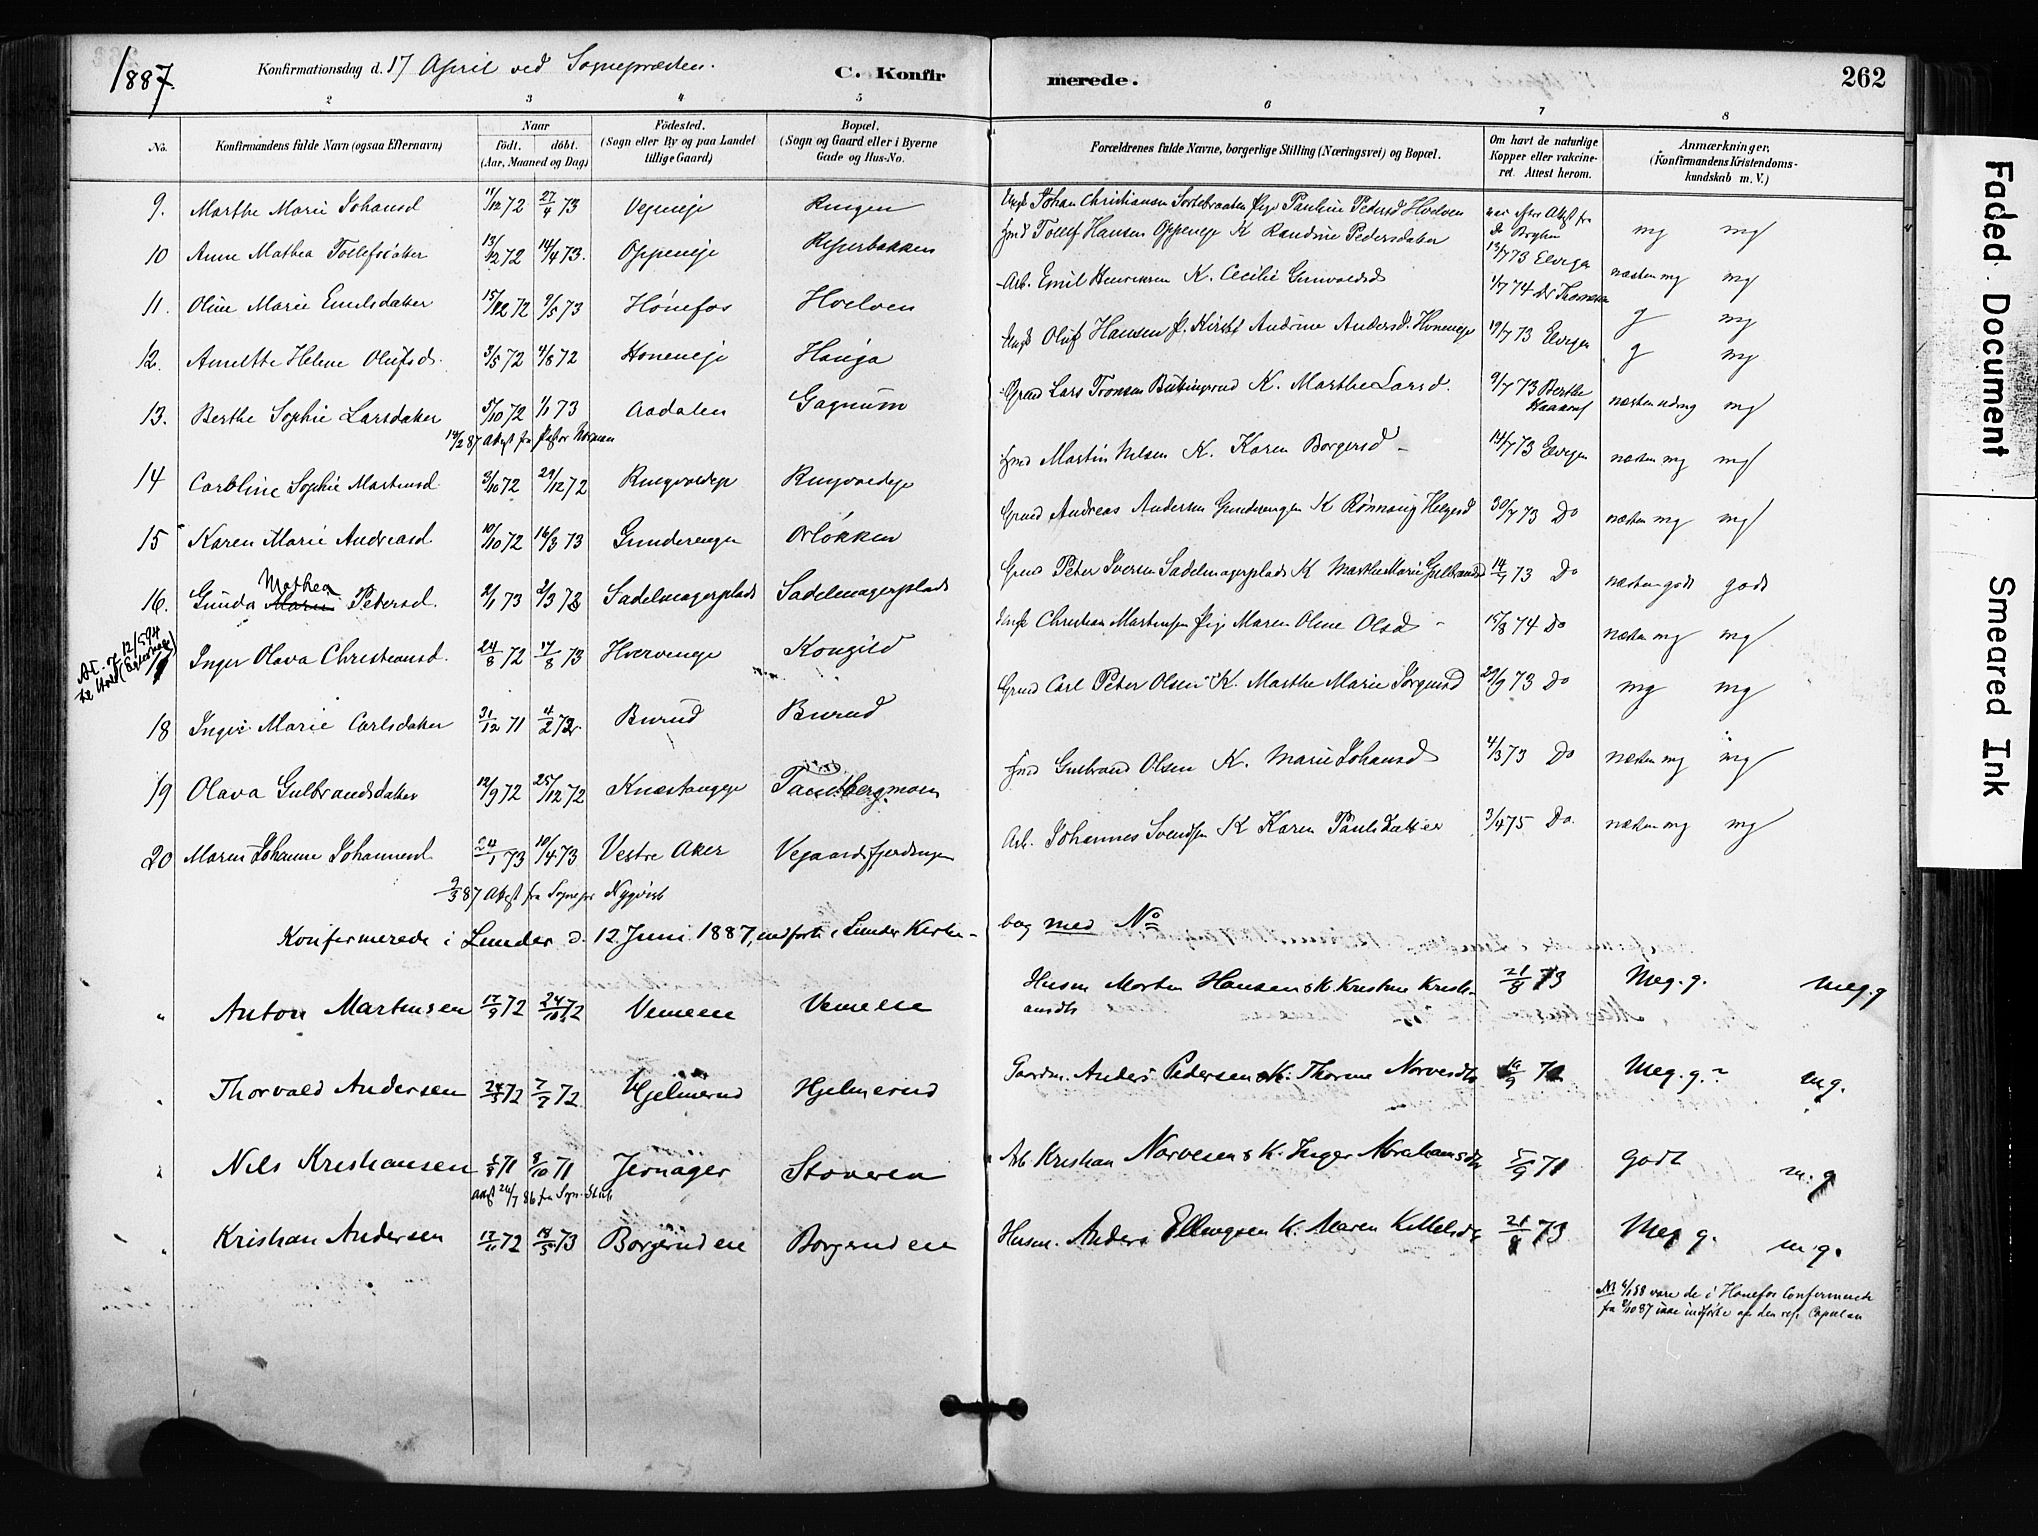 1887 Konfirmationsdag d. 17 April ved Sognepræsten. C. Konfirmerede. 262
2 3 4 5 6 7 8
No. Konfirmandens fulde Navn (ogsaa Efternavn) Naar født. døbt. (Aar, Maaned og Dag) Fødested. (Sogn eller By og paa Landet tillige Gaard) Bopæl. (Sogn og Gaard eller i Byerne Gade og Hus-No. Forældrenes fulde Navne, borgerlige Stilling (Næringsvei) og Bopæl. Om havt de naturlige Kopper eller vakcineret. Attest herom. Anmærkninger, (Konfirmandens Kristendomskundskab m. V.)
9. Marthe Marie Johansd 11/12 72 27/4 73 Vegneeje Ringen Johan Christiansen Sortebraaten Pige Pauline Pedersd Hvelven mg mg
10 Anne Mathea Tollefsdater 13/12 72 14/4 73. Oppeneje Tollef Hansen Oppeneje K Randine Pedersdater 13/7 73 Elvejen næsten mg mg
11. Oline Marie Emilsdater 15/12 72 9/5 73 Hønefos Hvelven Arb. Emil Henriksen K. Cecilie 1/7 74 Dr Thomesen g mg
12. Annette Helene Olufsd. 3/5 72 4/8 72 Honeneje Hauga Ungk Oluf Hansen P. Kirsti Andrine Andersd. Honeneje 19/7 73 Elvejen g mg
13. Berthe Sophie Larsdater 5/10 72 1/1 73 Aadalen Gagnum Grmd Lars Tronsen K. Marthe Larsd. 9/7 73 Berthe næsten udmg mg
14/2 87 Attest fra Pastor Norman
14 Caroline Sophie Martinsd 3/10 72 29/12 72 Ringvoldeje Ringvoldeje Hmd Martin Nilsen K. Karen Borgersd - 14/7 73 Elvejen næsten mg mg
15 Karen Marie Andreasd 10/10 72 16/3 73 Gunderengen Orløkken Grmd Andreas Andersen Gunderengen K Rønnaug Helgesd 30/7 73 Do næsten mg mg
Mathea
16. Gunda Marie Petersd. 2/1 73 2/3 73 Sadelmagerplads Sadelmagerplads Grmd Peter Iversen Sadelmagerplads K Marthe Marie Gulbrandsd 14/7 73 Do næsten godt godt
Inger Olava Christiansd. 24/8 72 17/8 73 Hvervenge Kongild Ungk Christian Martinsen Pige Maren Oline Olsd - 15/8 74 Do næsten mg mg
18 Inger Marie Carlsdater 31/12 71 4/2 72 Burud Burud Grmd Carl Peter Olsen K. Marthe Marie Jørgensd 29/9 73 Do mg mg
19 Olava Gulbrandsdater 12/9 72 25/12 72 Knestangeje Tandbergmoen Hmd Gulbrand Olsen K. Marie Johansd 4/3 73 Do næsten mg mg
20 Maren Johanne Johannesd. 24/1 73 10/4 73 Vestre Aker Vegaardsfjerdingen Arb. Johannes Svendsen K Karen Paulsdatter 3/4 75 Do. næsten mg mg
9/3 87 Attest fra Sognepr Nyqvist
Konfirmerede i Lunder d. 12 Juni 1887, indført i Lunder Kirke- bog med No
" Anton Martinsen 17/9 72 24/10 72 Vemeeie Vemeeie Husm Morten Hansen & K. Kristine Kristiansdtr 21/8 73 Meg. g. meg. g
" Thorvald Andersen 24/3 72 7/7 72 Hjelmerud Hjelmerud Gaardm. Anders Pedersen & K. Thorine Norvesdtr 10/9 72 Meg. g. m g.
" Nils Kristiansen 6/8 71 8/10 71 Jernager Stoveren Arb Kristian Norvesen & K. Inger Abrahamsdtr 5/9 71 Godt m. g
Attst 26/7 86 fra Sgn.
" Kristian Andersen 17/11 72 18/5 73 Borgerudeie Borgerudeie Husm. Anders Ellingsen K. Maren Kittelsdtr 21/8 73 Meg g. m. g.
NB 6/1 88 vare de i Hønefos Confirmerede
fra 2/10 87 ikke indførte af den res. Capellan
Faded Document
Smeared Ink